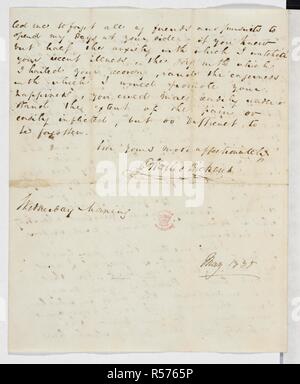 led me to forget all my friends and pursuits to
spend my days at your side – if you knew
but half the anxiety with which I watched
your recent illness, the joy with which
I hailed your recovery, and the eagerness
with which I would promote your
happiness, you could more readily under-
stand the extent of the pain so
easily inflicted, but so difficult to
be forgotten.
Ever yours most affectionately
Charles Dickens
Wednesday Morning
May 1835
alamy
Image ID: R5765P
www.alamy.com